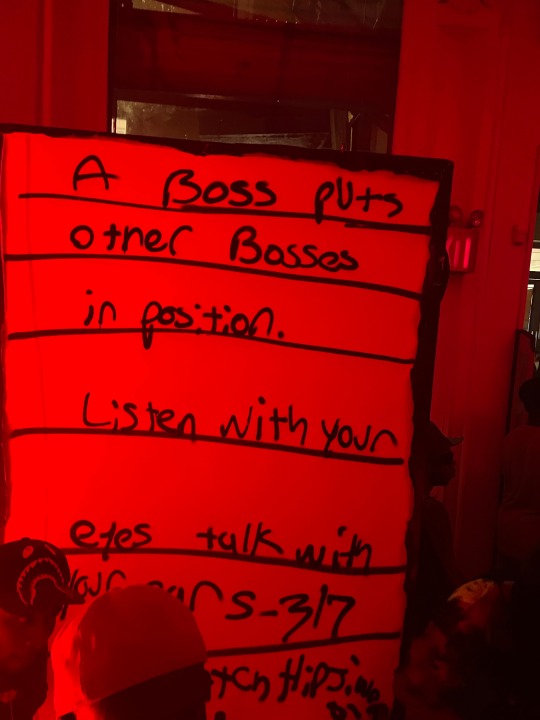 A Boss puts
other Bosses
in position.
Listen with your
eyes talk with
your ears-3/7